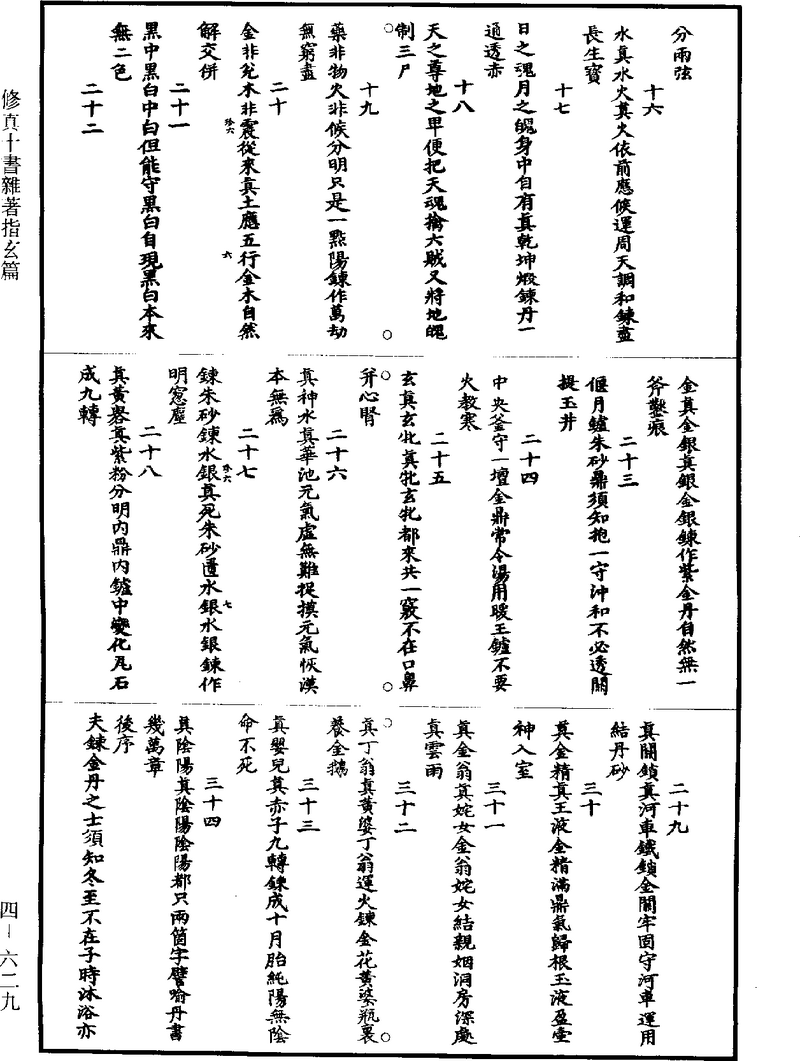 分兩弦
十六
水真水火真火依前應候運周天調和鍊盡
長生寶
十七
日之魂月之魄身中自有真乾坤煅鍊丹一
通透赤
十八
天之尊地之卑便把天魂擒六賊又將地魄
制三尸
十九
藥非物火非候分明只是一點陽鍊作萬劫
無窮盡
二十
金非兌木非震從來真土應五行金木自然
解交併
二十一
黑中黑白中白但能守黑白自現黑白本來
無二色
二十二
金真金銀真銀金銀鍊作紫金丹自然無一
斧鑿痕
二十三
偃月鑪朱砂鼎須知抱一守沖和不必透關
提玉井
二十四
中央釜守一壇金鼎常令湯用暖玉鑪不要
火教寒
二十五
玄真玄牝真牝玄牝都來共一竅不在口鼻
并心腎
二十六
真神水真華池元氣虛無難捉摸元氣恢漠
本無爲
二十七
鍊朱砂鍊水銀真死朱砂蜃水銀水銀鍊作
明窓塵
二十八
真黃轝真紫粉分明內鼎內鑪中變化瓦石
成九轉
二十九
真關鎖真河車鐵鎖金關牢固守河車運用
結丹砂
三十
真金精真玉液金精滿鼎氣歸根玉液盈壺
神入室
三十一
真金翁真姹女金翁姹女結親姻洞房深處
真雲雨
三十二
真丁翁真黃婆丁翁運火鍊金花黃婆瓶裏
養金鵝
三十三
真嬰兒真赤子九轉鍊成十月胎純陽無陰
命不死
三十四
真陰陽真陰陽陰陽都只兩箇字譬喻丹書
幾萬章
後序
夫鍊金丹之士須知冬至不在子時沐浴亦
修真十書雜著指玄篇
四－六二九